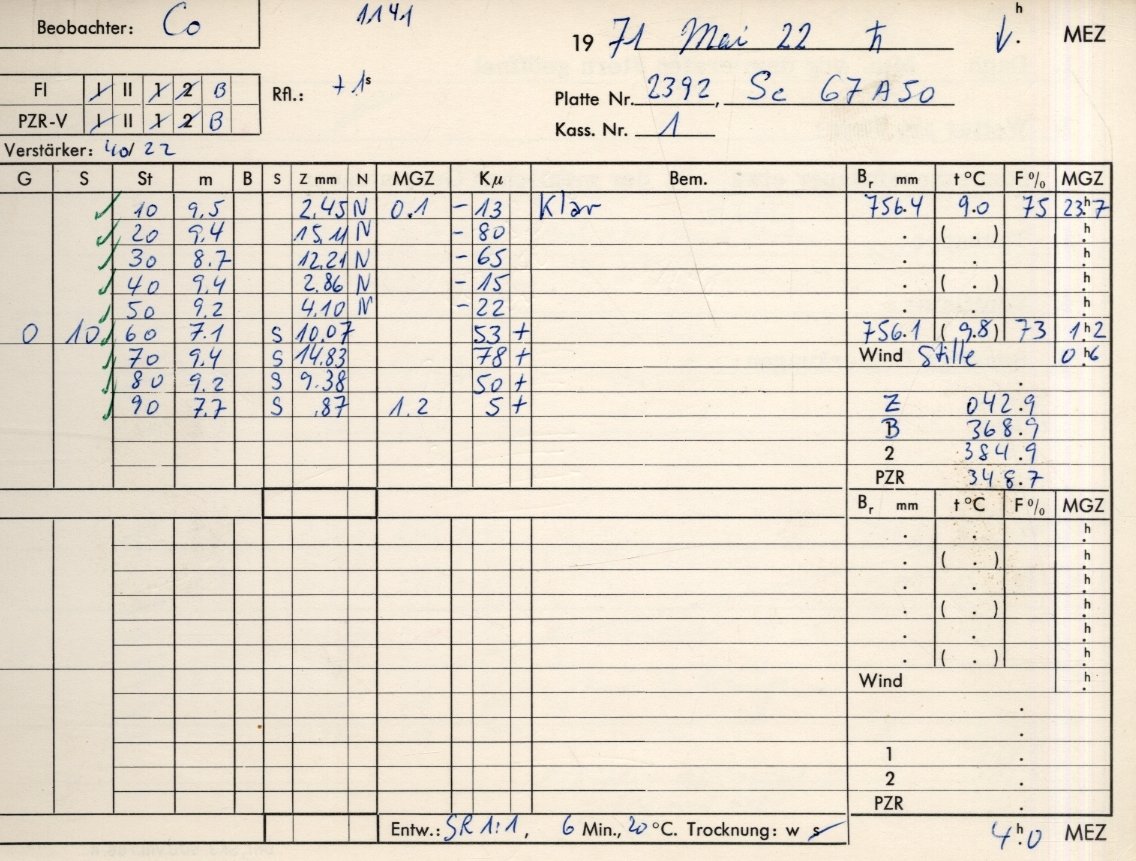 Beobachter: Co 1141 1971 Mai 22 ♄ ↓ h. MEZ
FI I II 1 2 B Rfl.: +1s Platte Nr. 2392, Sc 67A50
PZR-V I II 1 2 B Kass. Nr. 1
Verstärker: 40/22
G S St m B S Z mm N MGZ Kμ Bem. Br mm t °C F % MGZ
✓ 10 9.5 2.45 N 0.1 - 13 Klar 756.4 9.0 75 23h.7
✓ 20 9.4 15.11 N - 80 . ( . ) h.
✓ 30 8.7 12.21 N - 65 . . h.
✓ 40 9.4 2.86 N - 15 . ( . ) h.
✓ 50 9.2 4.10 N - 22 . . h.
0 10 ✓ 60 7.1 S 10.07 53 + 756.1 (9.8) 73 1h.2
✓ 70 9.4 S 14.83 78 + Wind Stille 0h.6
✓ 80 9.2 S 9.38 50 + .
✓ 90 7.7 S .87 MGZ 1.2 5 + Z 042.9
B 368.9
2 384.9
PZR 348.7
Br mm t °C F % MGZ
. . h.
. ( . ) h.
. . h.
. ( . ) h.
. . h.
. ( . ) h.
Wind h.
.
.
1 .
2 .
PZR .
Entw.: SR 1:1, 6 Min., 20 °C. Trocknung: w s 4h.0 MEZ